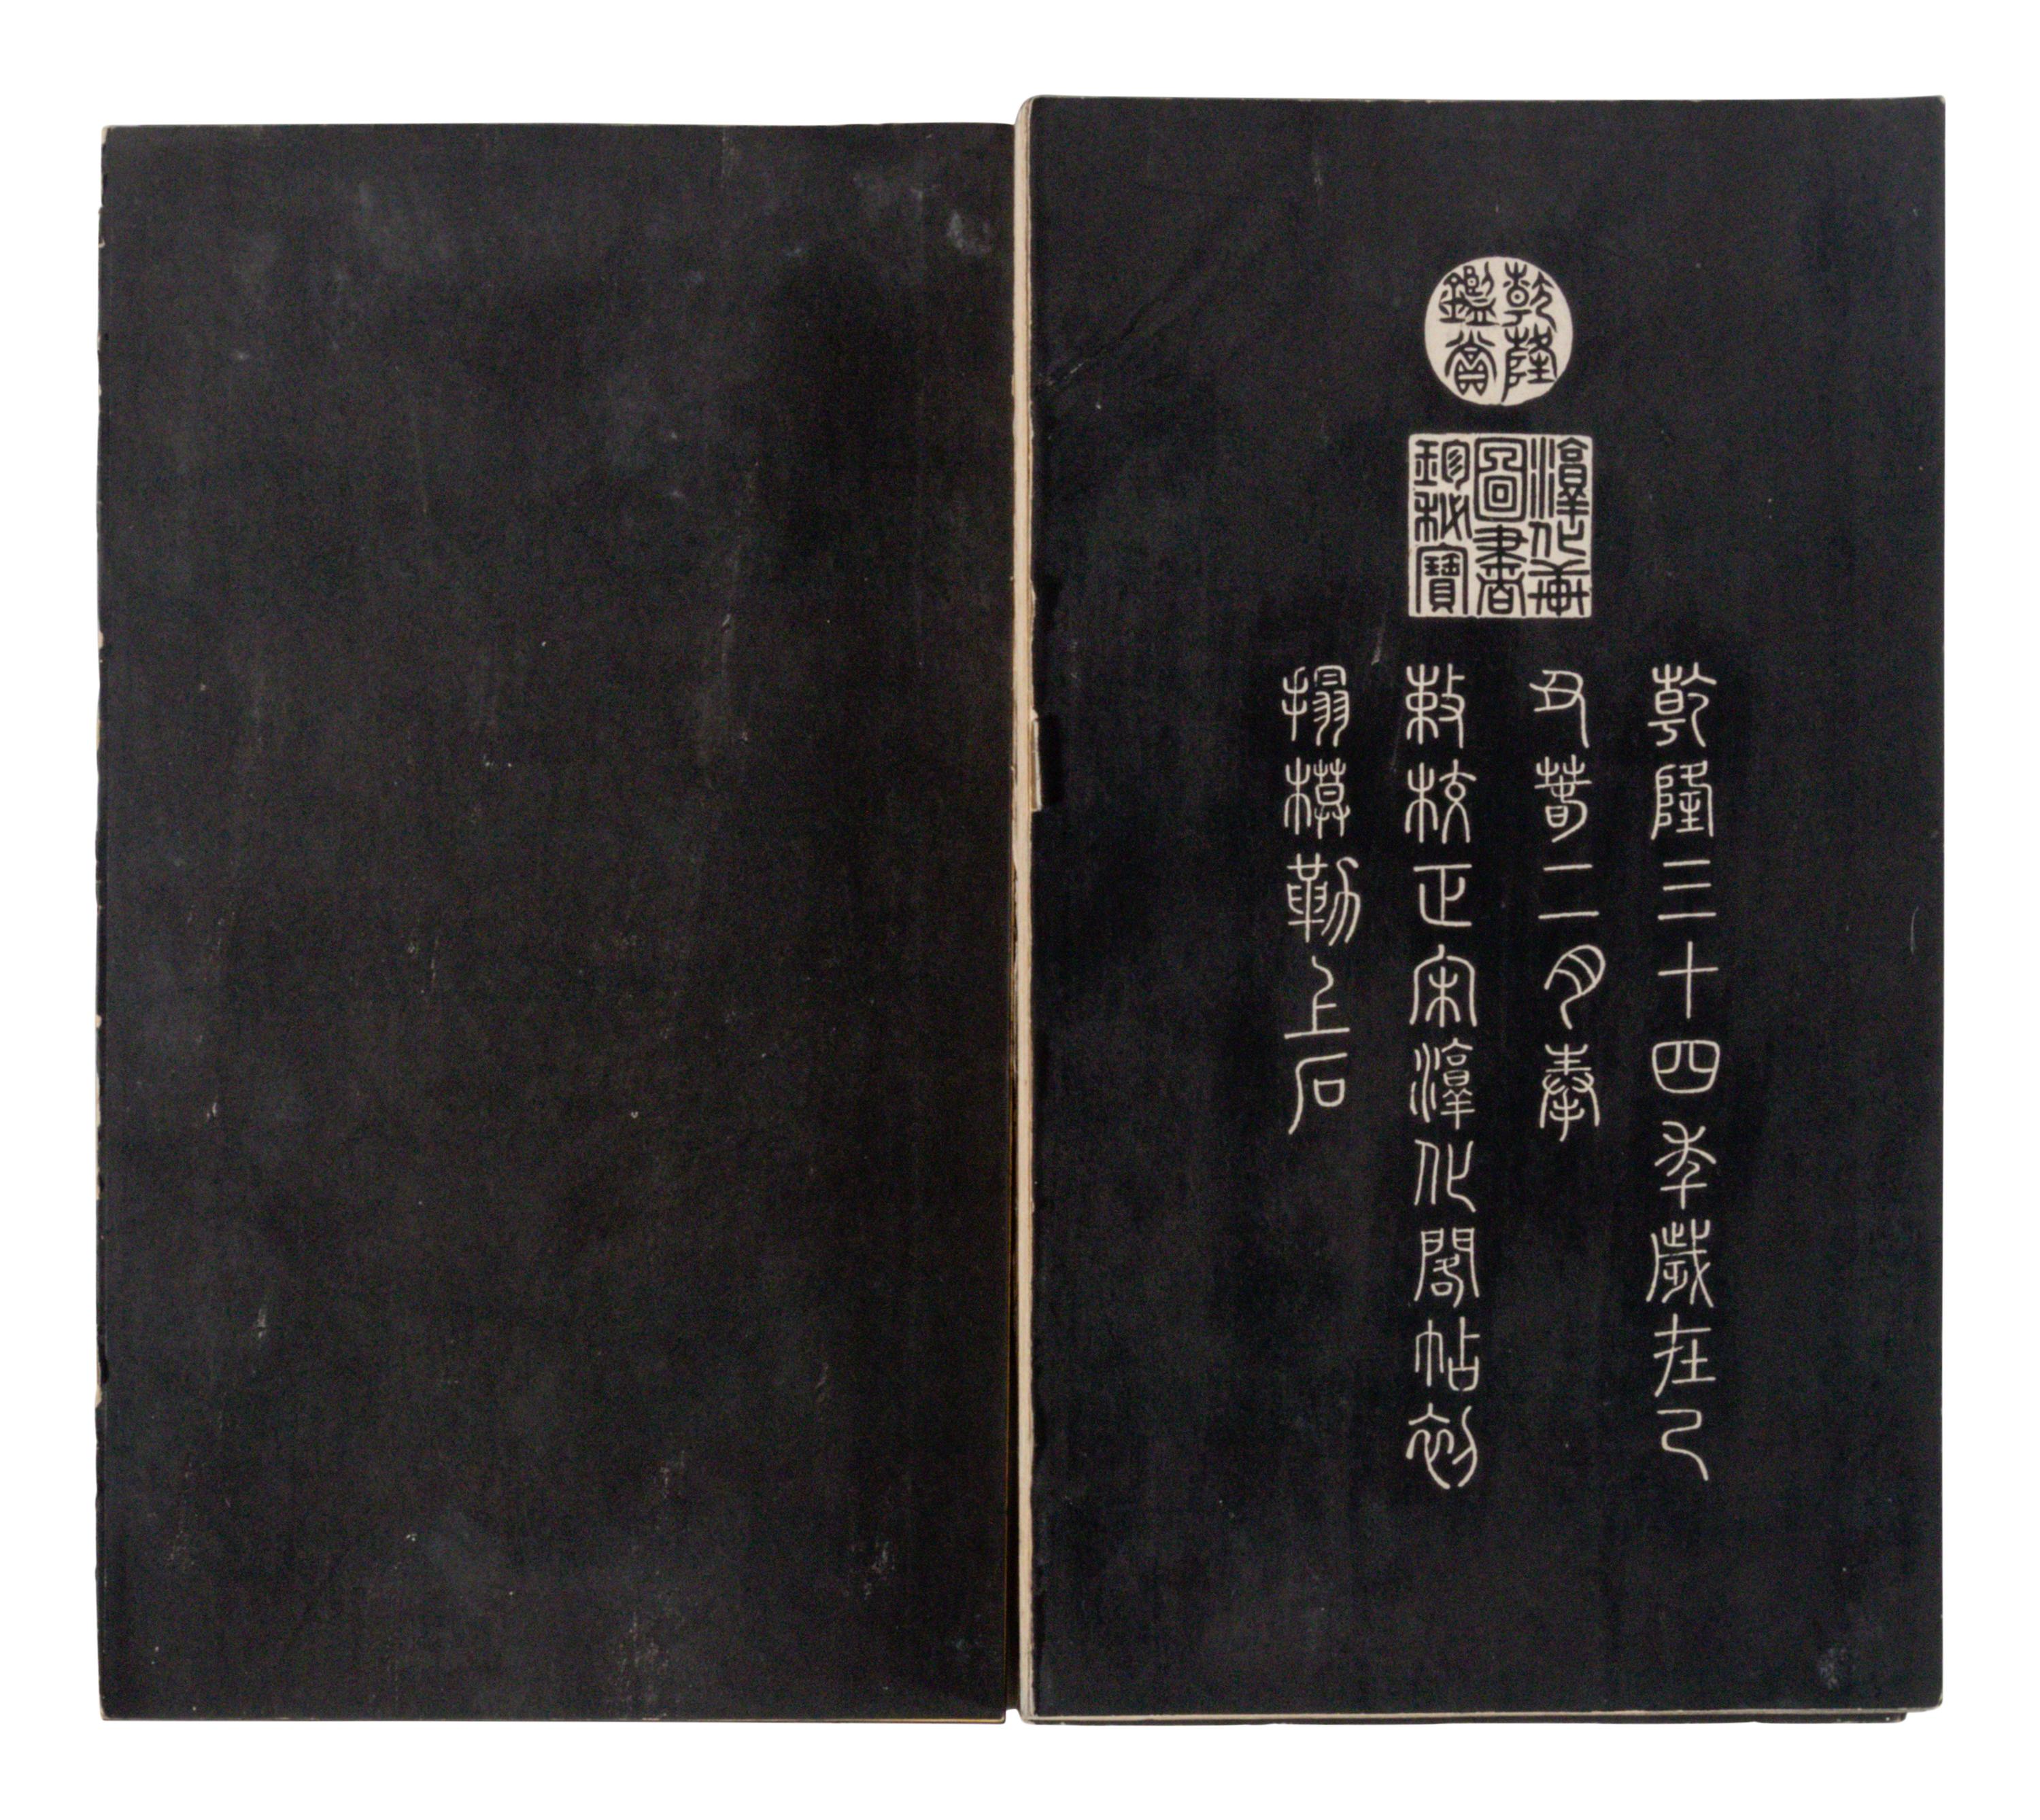 乾隆
鑑賞
淳化軒
圖書
珍秘寶
乾隆三十四年歲在己
丑春二月奉
敕校正宋淳化閣帖初
搨模勒上石